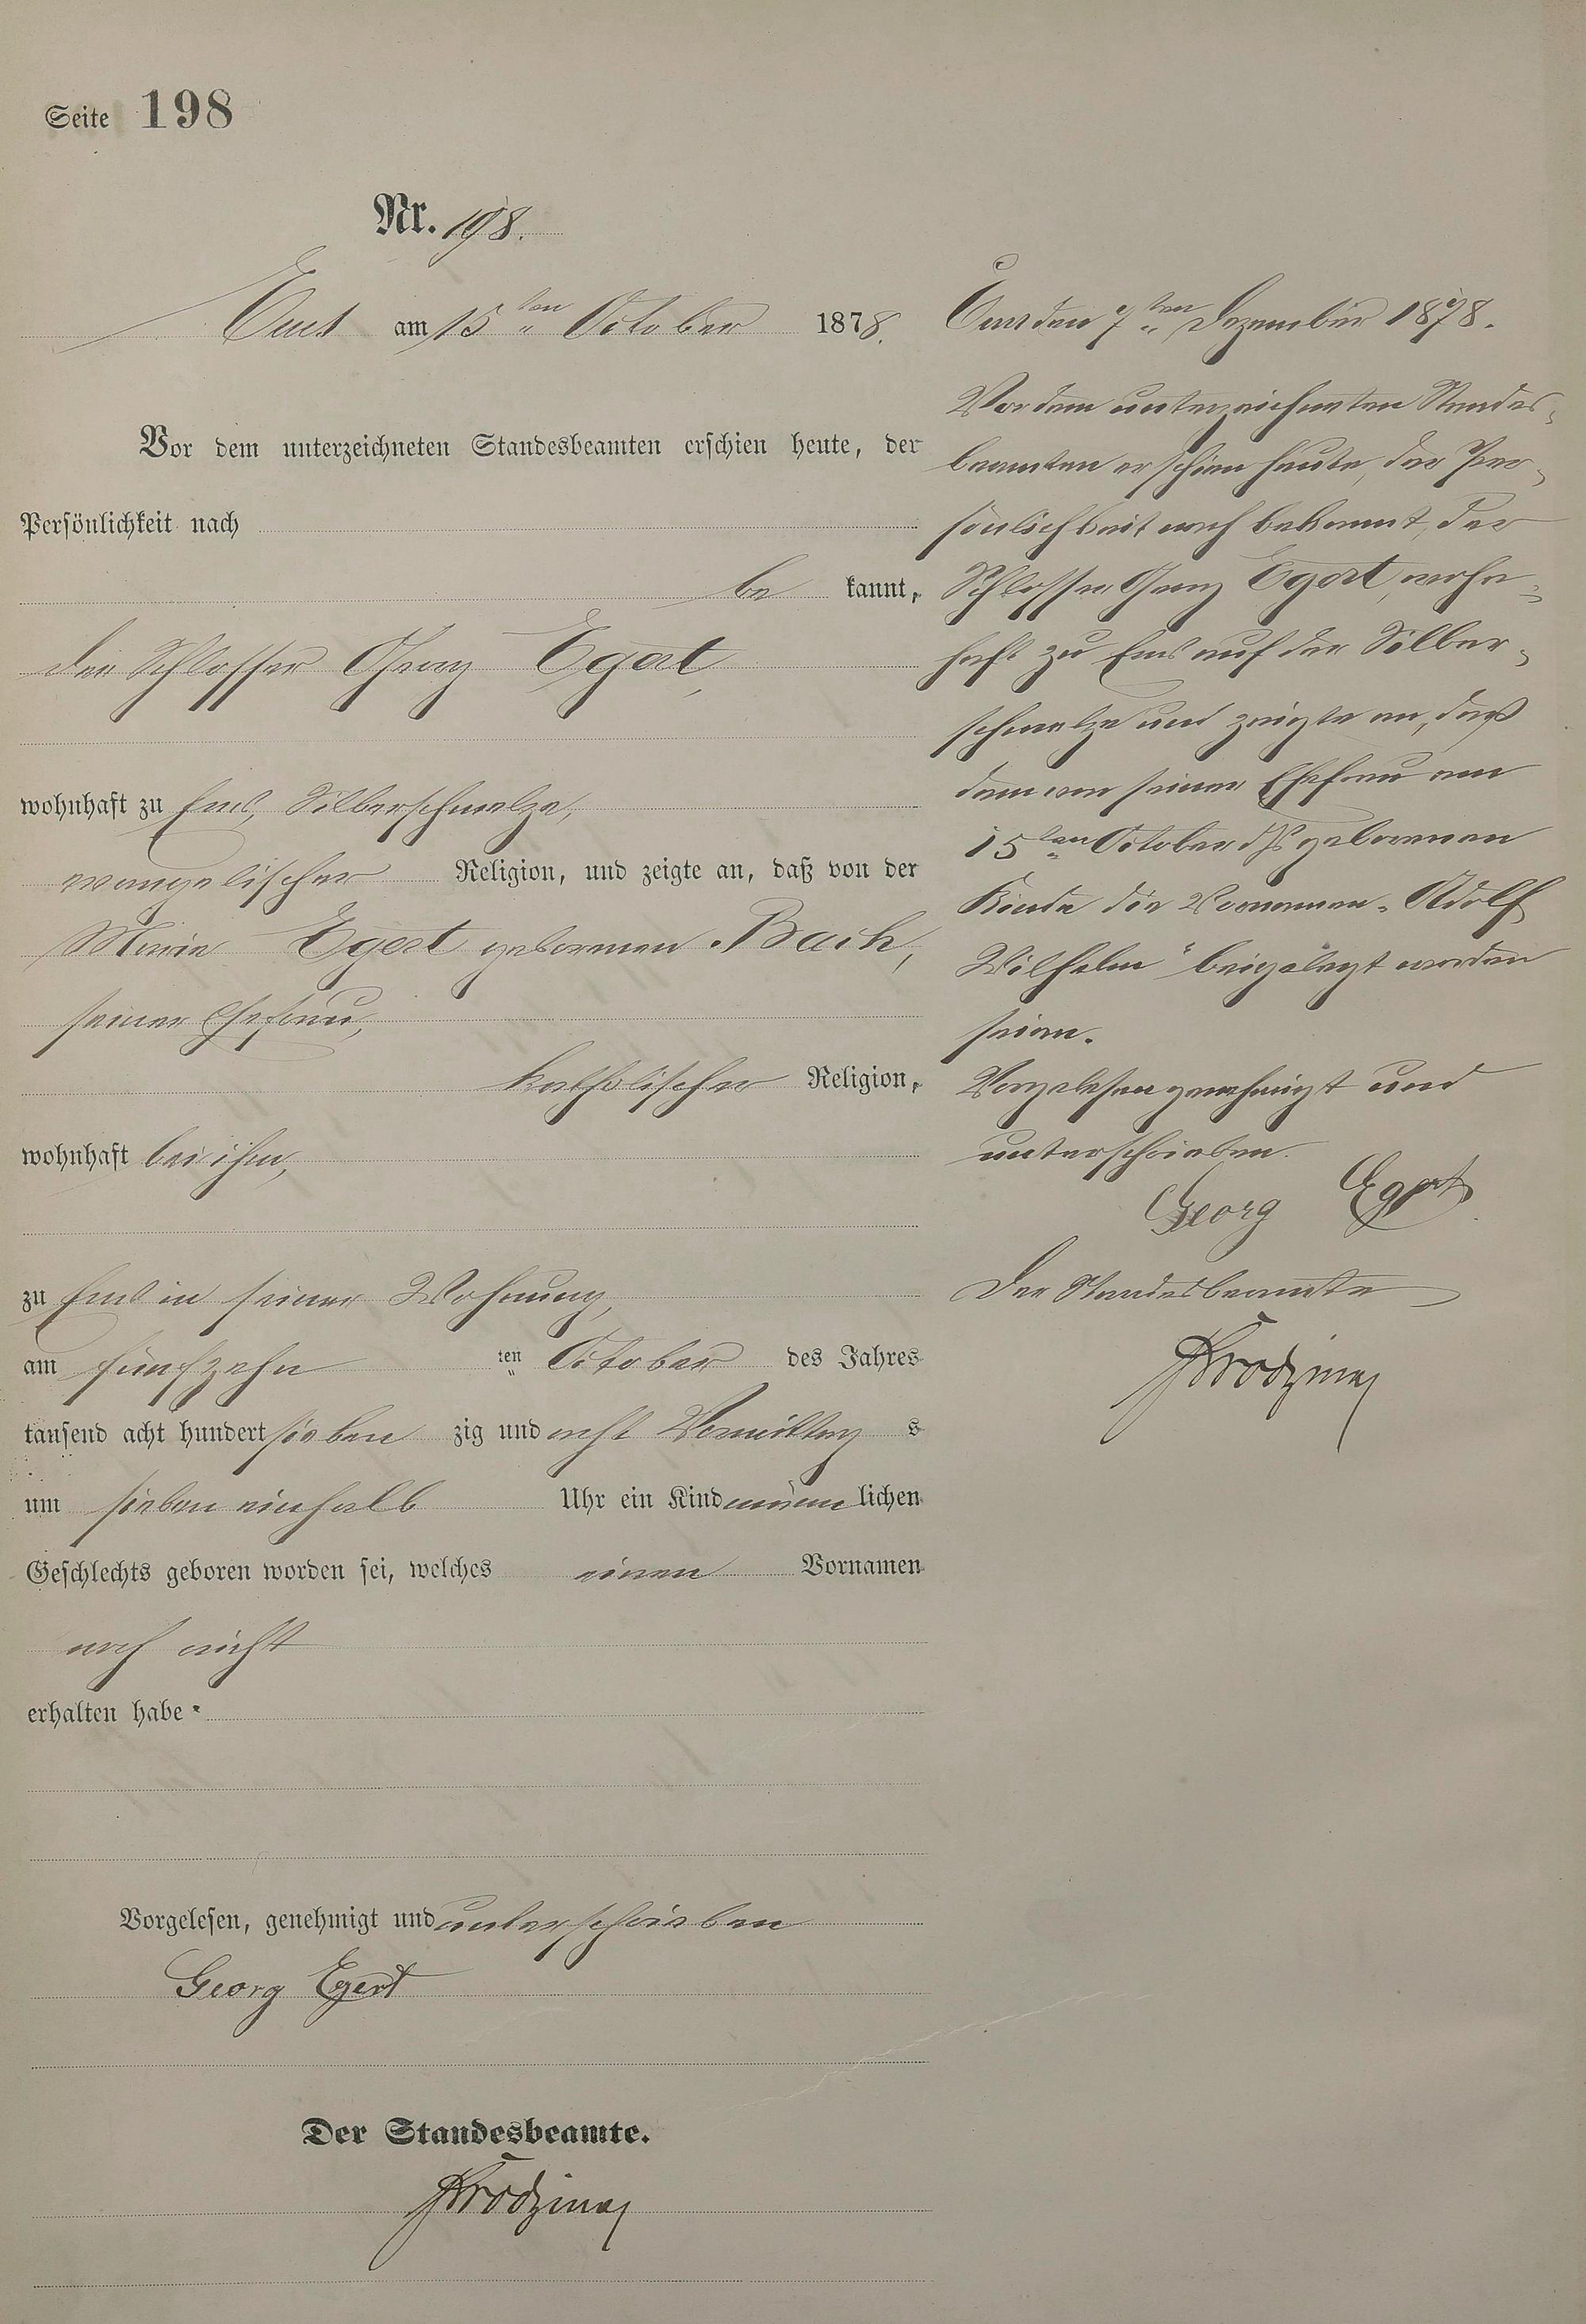 Seite 198
Nr. 198.
Ems am 15ten October 1878.
Vor dem unterzeichneten Standesbeamten erschien heute, der
Persönlichkeit nach
be kannt,
der Schlosser Georg Egert,
wohnhaft zu Ems, Silberschmelze,
evangelischer Religion, und zeigte an, daß von der
Marie Egert geborenen Bach,
seiner Ehefrau,
katholischer Religion,
wohnhaft bei ihm,
zu Ems in seiner Wohnung,
am fünfzehn ten October des Jahres
tausend acht hundert sieben zig und acht Vormittag s
um sieben einhalb Uhr ein Kind männ lichen
Geschlechts geboren worden sei, welches einen Vornamen
noch nicht
erhalten habe.
Vorgelesen, genehmigt und unterschrieben
Georg Egert
Der Standesbeamte.
Ems den 7ten Dezember 1878.
Vor dem unterzeichneten Standes-
beamten erschien heute, der Per-
sönlichkeit nach bekannt, der
Schlosser Georg Egert, wohn-
haft zu Ems auf der Silber-
schmelze und zeigte an, daß
dem von seiner Ehefrau am
15ten October dJs geborenen
Kinde die Vornamen „Adolf
Wilhelm" beigelegt worden
seien.
Vorgelesen genehmigt und
unterschrieben.
Georg Egert
Der Standesbeamte